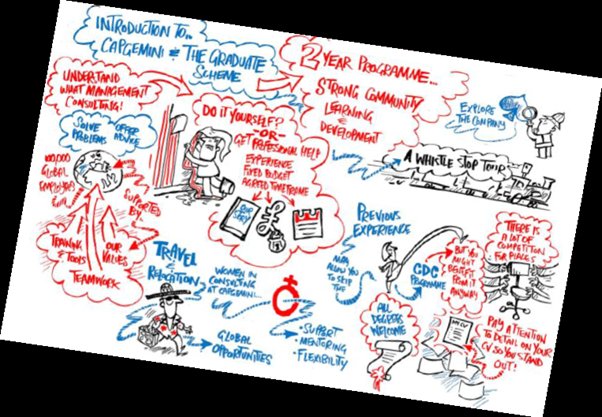 INTRODUCTION TO...
CAPGEMINI & THE GRADUATE
SCHEME
2 YEAR PROGRAMME...
STRONG COMMUNITY
LEARNING
&
DEVELOPMENT
EXPLORE
THE COMPANY
A WHISTLE STOP TOUR
UNDERSTAND
WHAT MANAGEMENT
CONSULTING!
SOLVE
PROBLEMS
OFFER
ADVICE
GLOBAL
EMPLOYEES
SUPPORTED
BY
TRAINING
& TOOLS
OUR
VALUES
TEAMWORK
DO IT YOURSELF?
-OR-
GET PROFESSIONAL HELP
EXPERIENCE
FIXED BUDGET
AGREED TIMEFRAME
OUR
STORY
TRAVEL
&
RELOCATION
WOMEN IN
CONSULTING
AT CAPGEMINI...
GLOBAL
OPPORTUNITIES
• SUPPORT
• MENTORING
• FLEXIBILITY
PREVIOUS
EXPERIENCE
ALLOW YOU
TO SKIP
THE
CDC
PROGRAMME
BUT YOU
MIGHT
BENEFIT
FROM IT
ANYWAY
ALL
DEGREES
WELCOME
THERE IS
A LOT OF
COMPETITION
FOR PLACES
MY CV
PAY ATTENTION
TO DETAIL ON YOUR
CV SO YOU STAND
OUT!